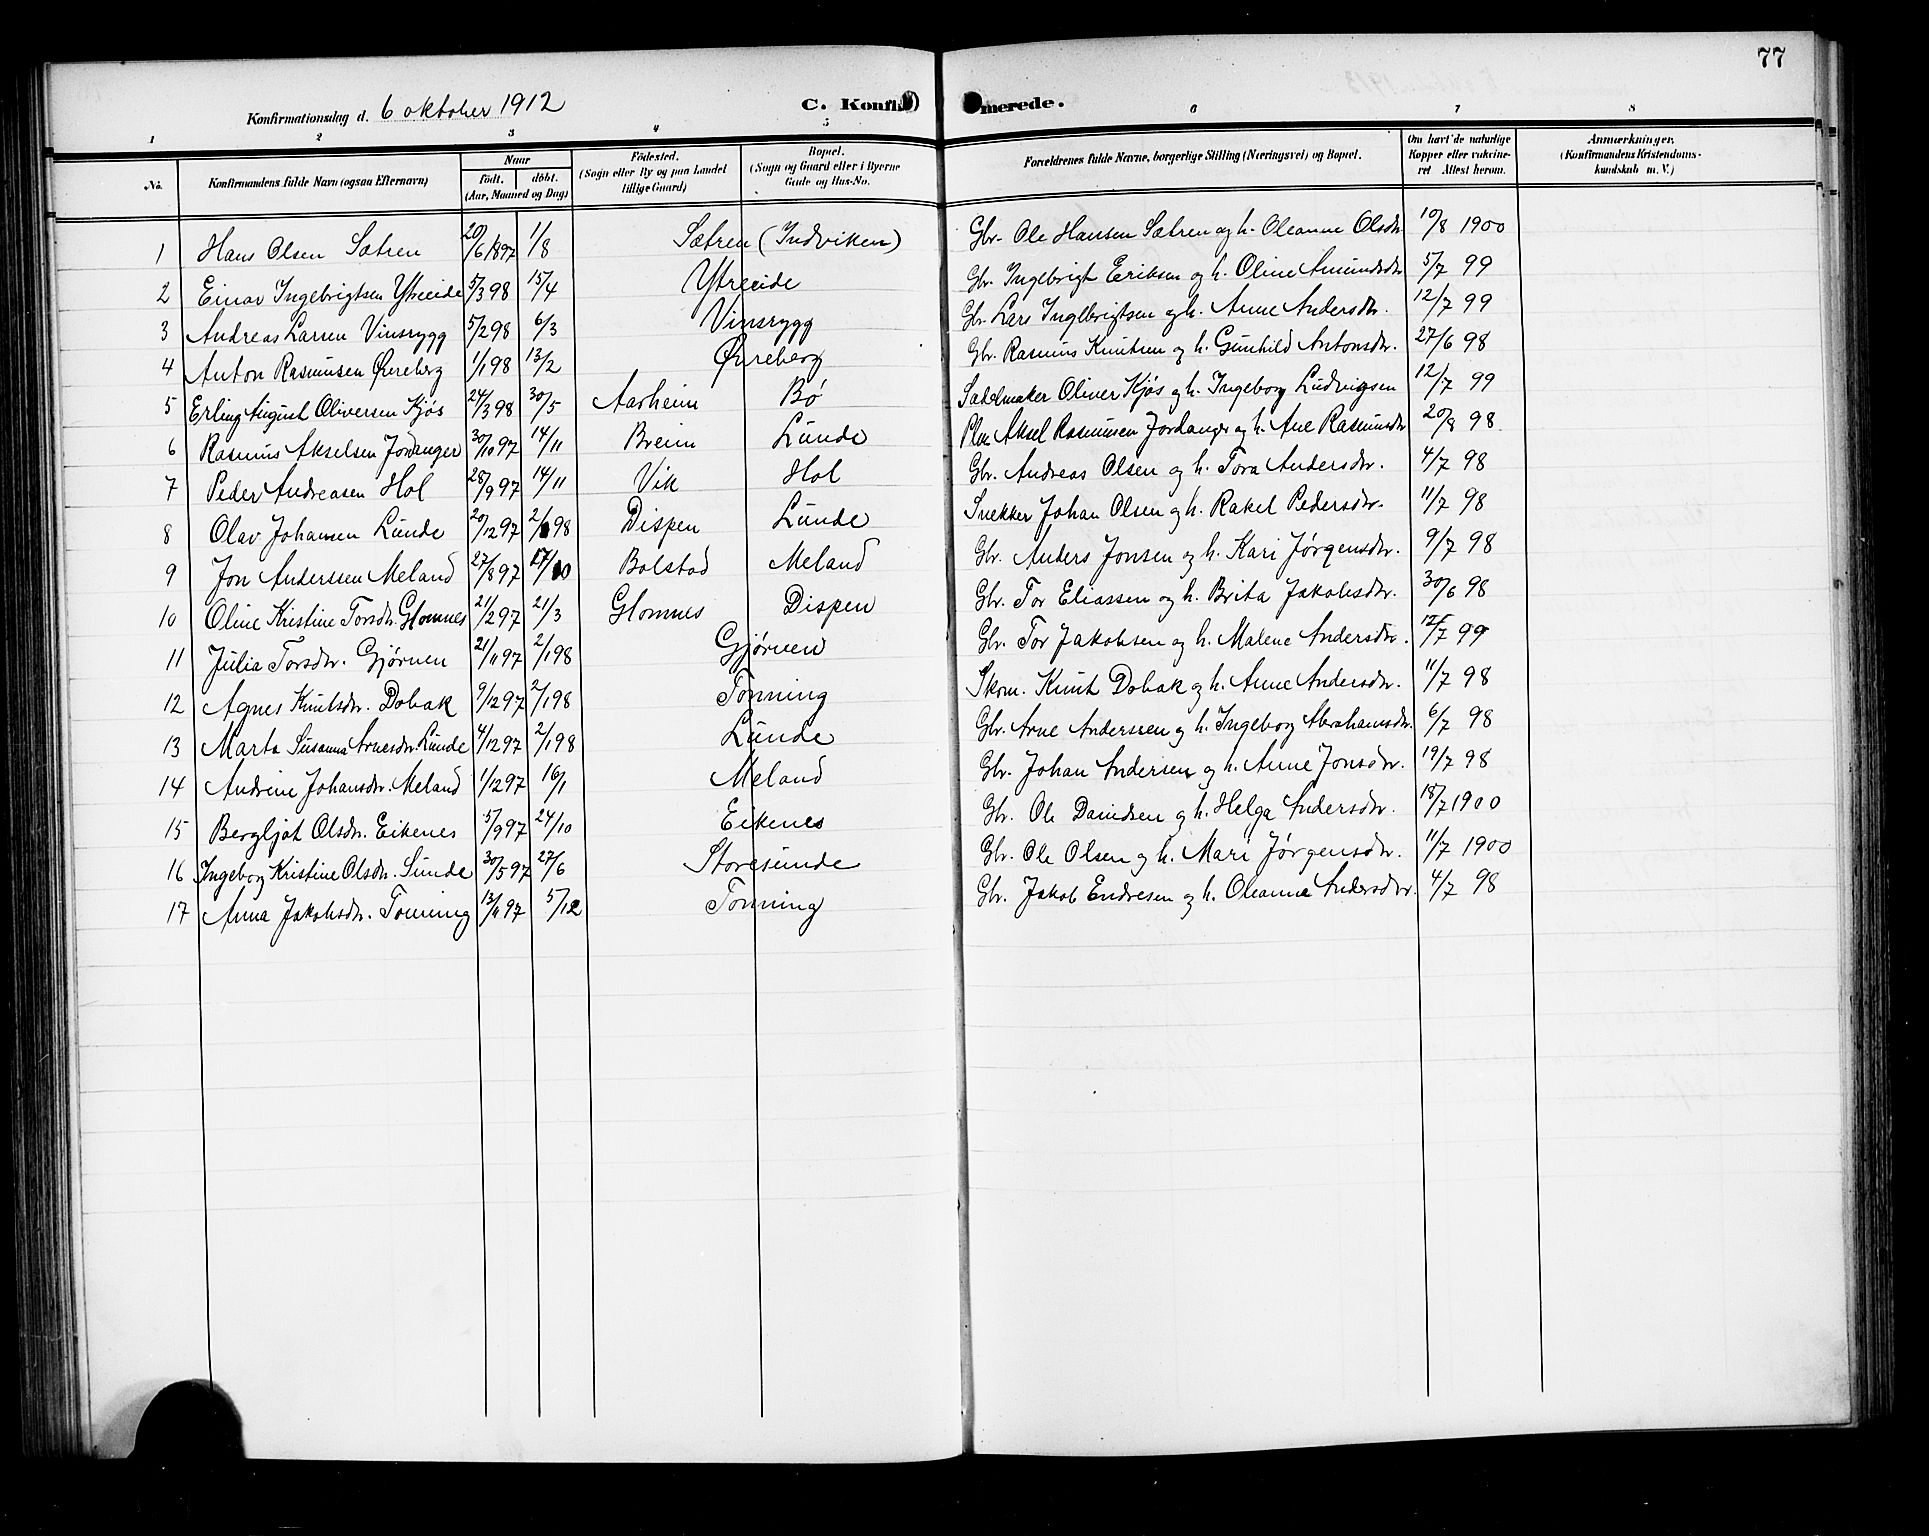 77
Konfirmationsdag d. 6 oktober 1912
C. Konfir merede.
1 2 3 4 5 6 7 8
No. Konfirmandens fulde Navn (ogsaa Efternavn) Naar født. døbt. (Aar, Maaned og Dag) Fødested. (Sogn eller By og paa Landet tillige Gaard) Bopæl. (Sogn og Gaard eller i Byerne Gade og Hus-No. Forældrenes fulde Navne, borgerlige Stilling (Næringsvei) og Bopæl. Om havt de naturlige Kopper eller vakcineret Attest herom. Anmærkninger. (Konfirmandens Kristendomskundskab m. V.)
1 Hans Olsen Sætren 20/6 1897 1/8 Sætren (Indviken) Gbr. Ole Hansen Sætren og h. Oleanne Olsdtr. 10/8 1900
2 Einar Ingebrigtsen Ytreeide 5/3 98 15/4 Ytreeide Gbr. Ingebrigt Eriksen og h. Oline Amundsdtr 5/7 99
3 Andreas Larsen Vinsrygg 5/2 98 6/3 Vinsrygg Gbr. Lars Ingebrigtsen og h. Anne Andersdtr. 12/7 99
4 Anton Rasmusen Øvreberg 1/1 98 13/2 Øvreberg Gbr. Rasmus Knutsen og h. Gunhild Antonsdtr. 27/6 98
5 Erling August Oliversen Kjøs 24/3 98 30/5 Aarheim Bø Sadelmaker Oliver Kjøs og h. Ingeborg Ludvigsen 12/7 99
6 Rasmus Akselsen Jordanger 30/10 97 14/11 Breim Lunde Aksel Rasmusen Jordanger og h. Ane Rasmusdtr 20/8 98.
7 Peder Andreasen Hol 28/9 97 14/11 Vik Hol Gbr. Andreas Olsen og h. Tora Andersdtr. 4/7 98
8 Olav Johansen Lunde 20/12 97 2/1 98 Dispen Lunde Snekker Johan Olsen og h. Rakel Pedersdtr. 11/7 98
9 Jon Anderssen Meland 27/8 97 17/10 Bolstad Meland Gbr. Anders Jonsen og h. Kari Jørgensdtr. 9/7 98
10 Oline Kristine Torsdtr. Glomnes 21/2 97 21/3 Glomnes Dispen Gbr. Tor Eliassen og h. Brita Jakobsdtr. 30/6 98
11 Julia Torsdtr. Gjørven 21/11 97 2/1 98 Gjørven Gbr. Tor Jakobsen og h. Malene Andersdtr. 12/7 99
12 Agnes Knutsdtr. Dobak 9/12 97 2/1 98 Tonning Skom. Knut Dobak og h. Anne Andersdtr. 11/7 98
13 Marta Susanna Arnesdtr. Lunde 4/12 97 2/1 98 Lunde Gbr. Arne Anderssen og h. Ingeborg Abrahamsdtr. 6/7 98
14 Andrine Johansdtr. Meland 1/12 97 16/1 Meland Gbr. Johan Andersen og h. Anne Jonsdtr. 19/7 98
15 Bergljot Olsdtr. Eikenes 5/9 97 24/10 Eikenes Gbr. Ole Davidsen og h. Helga Andersdtr. 18/7 1900
16 Ingeborg Kristine Olsdtr. Sunde 30/5 97 27/6 Storesunde Gbr. Ole Olsen og h. Mari Jørgensdtr. 11/7 1900
17 Anna Jakobsdtr. Tonning 13/11 97 5/12 Tonning Gbr. Jakob Endresen og h. Oleanna Andersdtr. 4/7 98